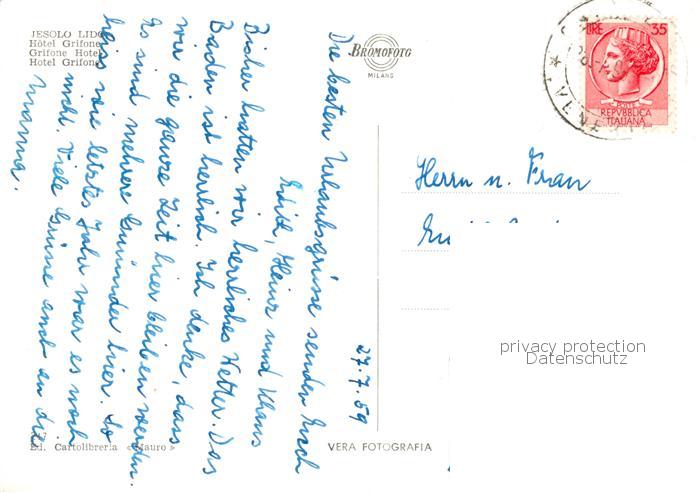 JESOLO LIDO
Hôtel Grifone
Grifone Hotel
Hotel Grifone
BROMOFOTO
MILANO
LIRE 35
POSTE
REPVBBLICA
ITALIANA
27.7.59
Die besten Urlaubsgrüsse senden Euch
Edith, Heinz und Klaus
Bisher hatten wir herrliches Wetter. Das
Baden ist herrlich. Ich denke, dass
wir die ganze Zeit hier bleiben werden.
Es sind mehrere Gmünder hier. So
heiss wie letztes Jahr war es noch
nicht. Viele Grüsse auch an die
Mama.
Herrn u. Frau
privacy protection
Datenschutz
Ed. Cartolibreria «Mauro»
VERA FOTOGRAFIA